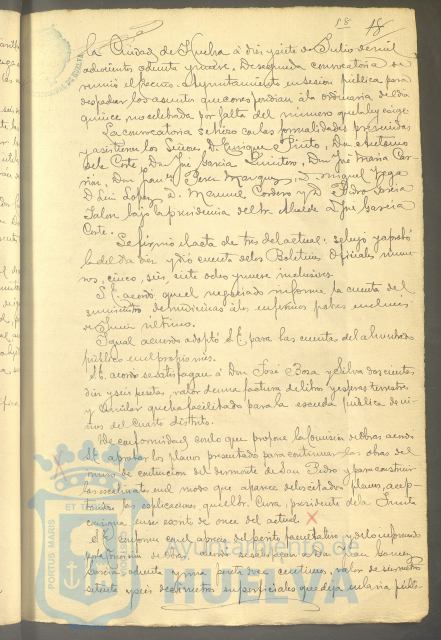 18 18
la Ciudad de Huelva á diez y siete de Julio de mil
ochocientos ochenta y nueve. De segunda convocatoria se
reunió el Excmo. Ayuntamiento en sesion pública para
despachar los asuntos que correspondian á la ordinaria del dia
quince, no celebrada por falta del número que la ley exige.
La convocatoria se hizo con las formalidades prevenidas
y asistieron los Señores D. Enrique Pinto, Don Antonio
de la Corte, Don José Garcia Quintero, Don José Maria
Don Juan Perez Marquez, D. Miguel Vega
D. Luis Lopez, D. Manuel Cordero y D. Pedro Garcia
Jalon bajo la presidencia del Sr. Alcalde D. José Garcia
Corte.
Se firmó el acta de tres del actual, se leyó y aprobó
la del dia diez y dió cuenta de los Boletines Oficiales número
cinco, seis, siete, ocho y nueve inclusives.
S. E. acordó que el negociado informe la cuenta del
suministro de medicinas á los enfermos pobres en el mes
de Junio último.
Igual acuerdo adoptó S. E. para la cuenta del alumbrado
público en el propio mes.
S. E. acordó se satisfagan á Don José Bosa y Silva doscientas
diez y seis pesetas, valor de una factura de libros y
y que ha facilitado para la escuela pública de ni-
del cuarto distrito.
De conformidad con lo que propone la Comision de obras acordó
S. E. aprobar los planos presentados para continuar las obras del
muro de contencion del desmonte de San Pedro y para construir
las escalinatas, del modo que aparece del citado plano, acep-
tando las esplicaciones que el Sr. Cura, presidente de la Junta
en su escrito de once del actual. X
S. E. conforme con el aprecio del perito facultativo y de lo informado
por la Comision de obras, acordó se satisfagan á Don
Garcia ochenta y una pesetas céntimos, valor de metros
setenta y seis decímetros superficiales que deja en la via públi-
Ayuntamiento de
HUELVA
PORTUS MARIS ET TERRAE CUSTODIA